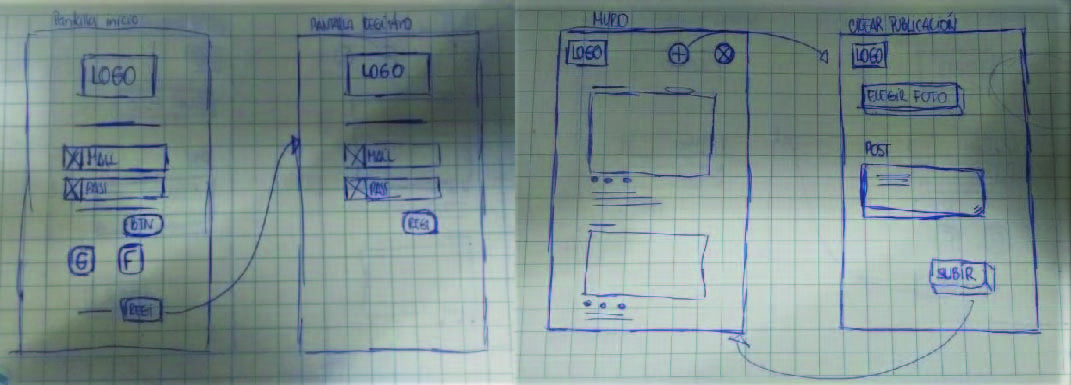 Pantalla inicio
LOGO
MAIL
PASS
BTN
G
F
REGI
PANTALLA REGISTRO
LOGO
MAIL
PASS
REGI
MURO
LOGO
CREAR PUBLICACIÓN
LOGO
ELEGIR FOTO
POST
SUBIR